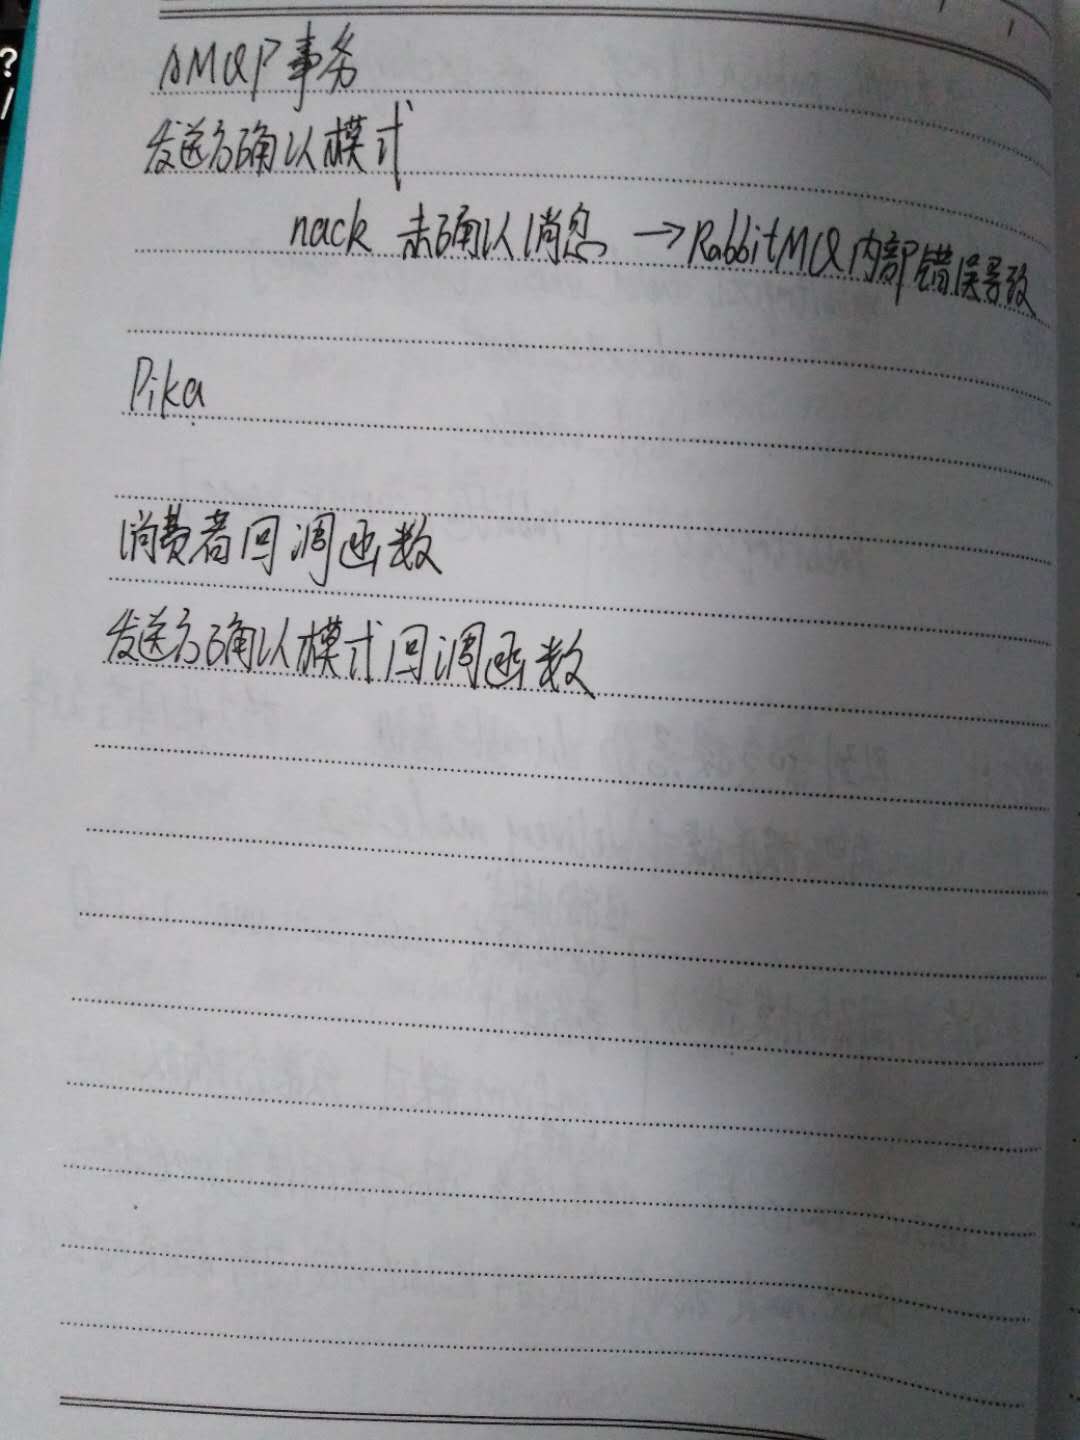 AMQP事务
发送方确认模式
nack 未确认消息 →RabbitMQ内部错误导致
Pika
消费者回调函数
发送方确认模式回调函数